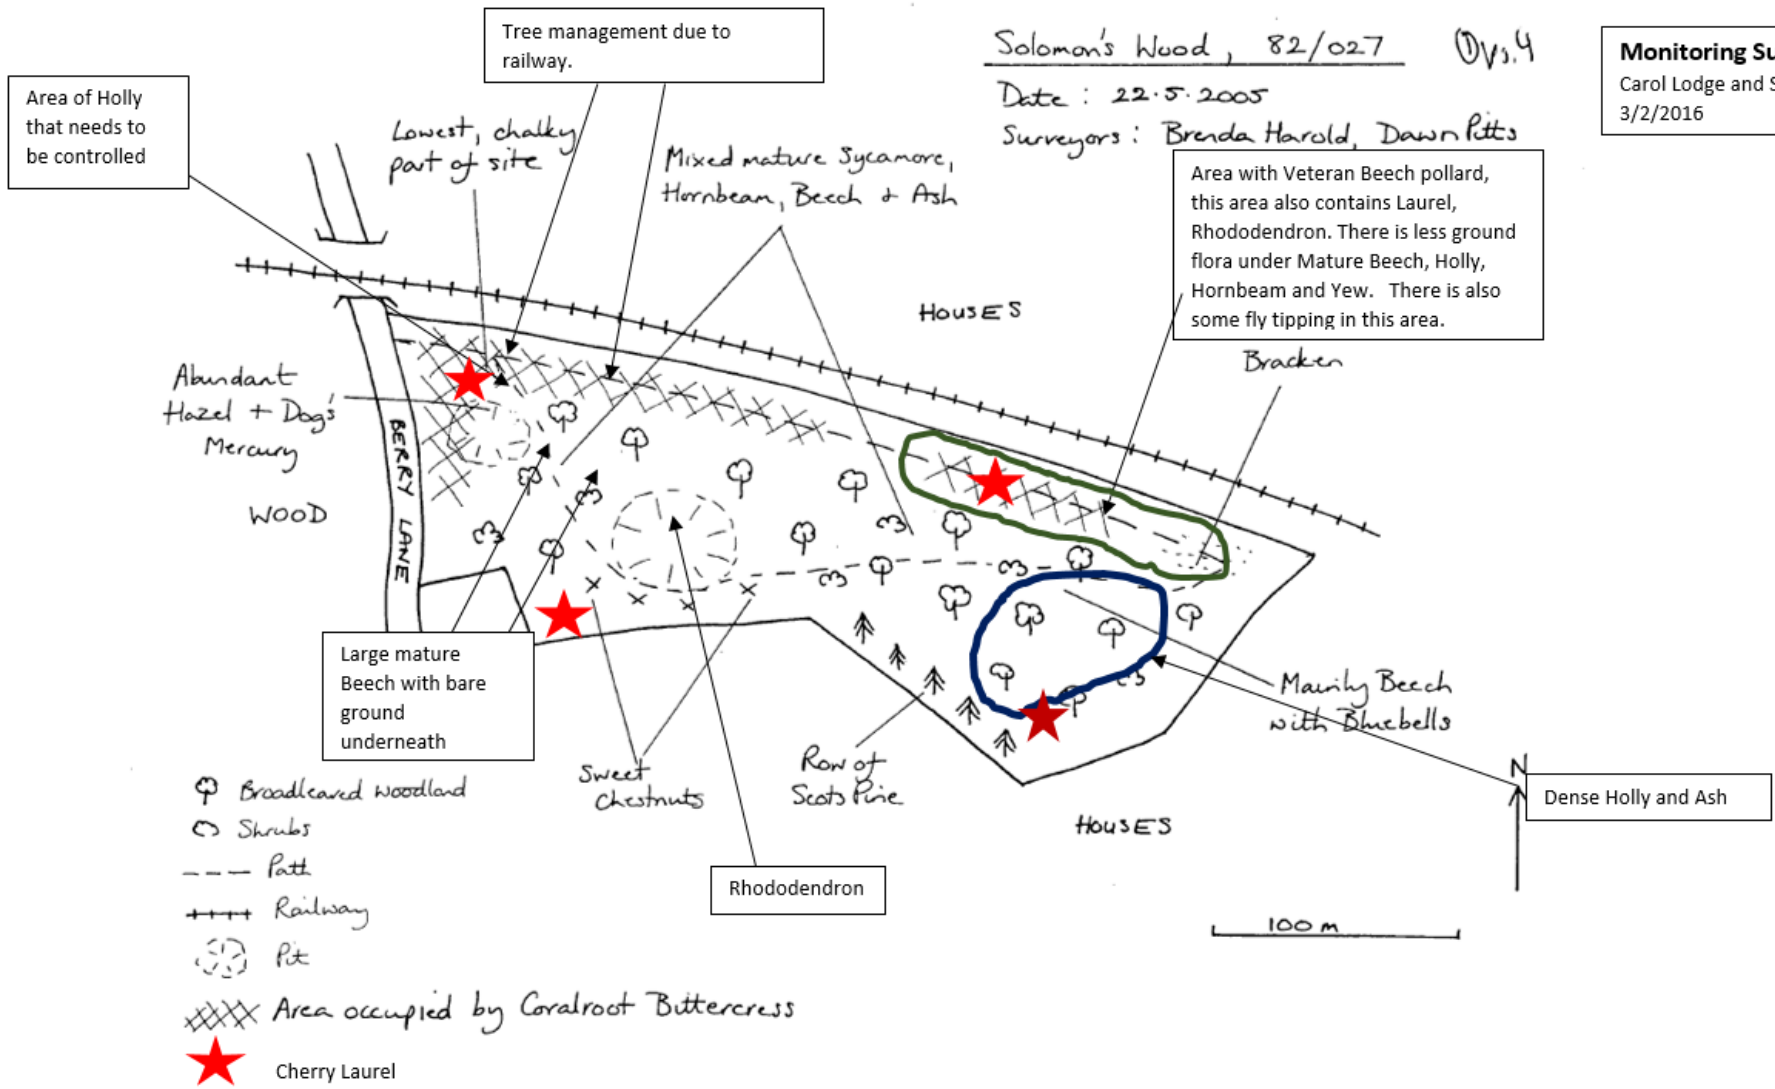 Tree management due to
railway.
Solomon's Wood, 82/027
Date: 22.5.2005
Surveyors: Brenda Harold, Dawn Pitts
Monitoring Su
Carol Lodge and S
3/2/2016
Area of Holly
that needs to
be controlled
Lowest, chalky
part of site
Mixed mature Sycamore,
Hornbeam, Beech & Ash
Area with Veteran Beech pollard,
this area also contains Laurel,
Rhododendron. There is less ground
flora under Mature Beech, Holly,
Hornbeam and Yew. There is also
some fly tipping in this area.
HOUSES
Bracken
Abundant
Hazel + Dog's
Mercury
BERRY LANE
WOOD
Large mature
Beech with bare
ground
underneath
Mainly Beech
with Bluebells
Sweet
Chestnuts
Row of
Scots Pine
N
Dense Holly and Ash
HOUSES
Rhododendron
100m
Broadleaved woodland
Shrubs
Path
Railway
Pit
Area occupied by Coralroot Buttercress
Cherry Laurel